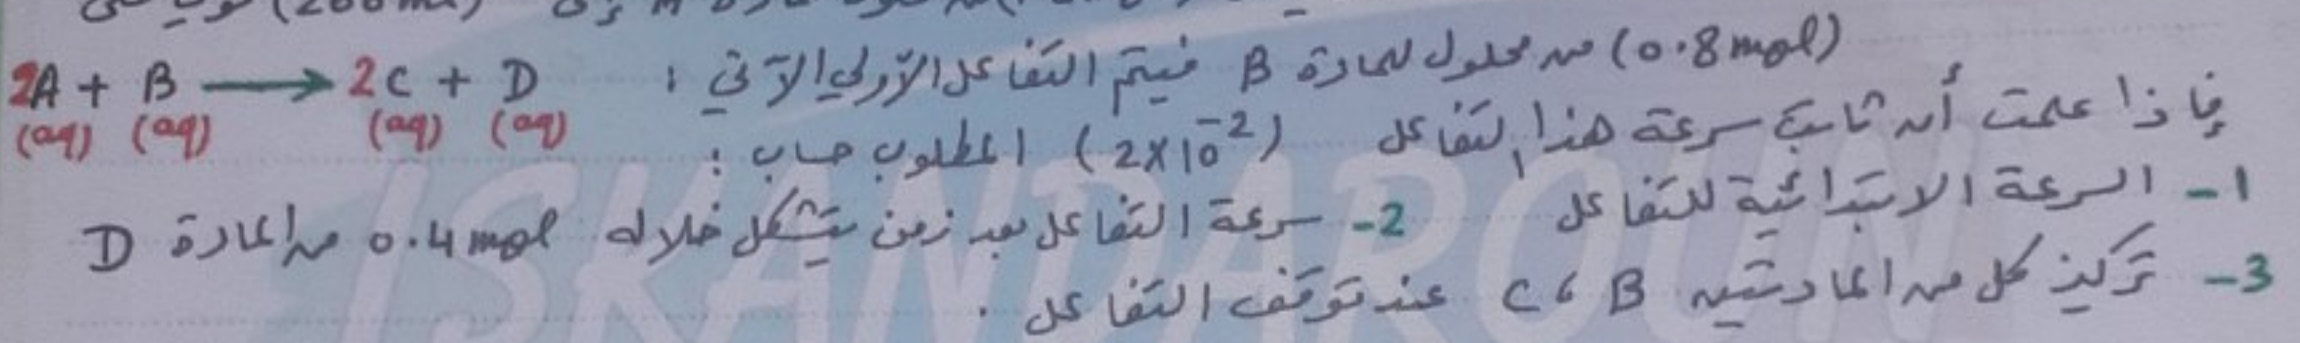 (0.8mol) من محلول للمادة B فيتم التفاعل الأولي الآتي :
2A + B → 2C + D
(aq) (aq) (aq) (aq)
فإذا علمت أن ثابت سرعة هذا التفاعل (2×10⁻²) المطلوب حساب :
1- السرعة الابتدائية للتفاعل 2- سرعة التفاعل بعد زمن يتشكل خلاله 0.4mol من المادة D
3- تركيز كل من المادتين B ، C عند توقف التفاعل .
ISKANDAROUN